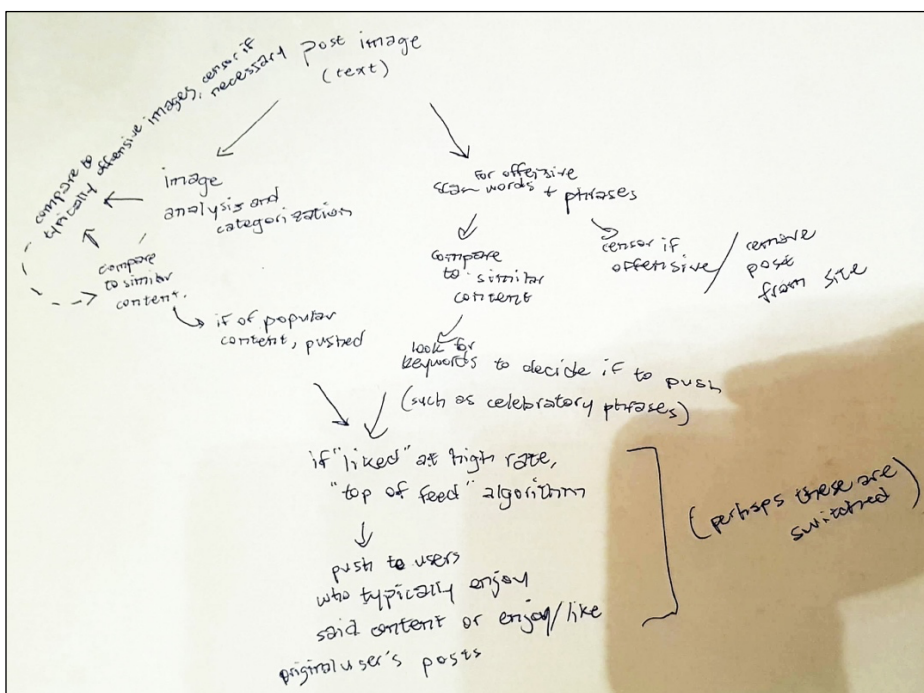 post image
(text)
compare to
typically offensive images, censor if
necessary
image
analysis and
categorization
compare
to similar
content.
if of popular
content, pushed
for offensive
scan words + phrases
censor if
offensive / remove
post
from site
compare
to similar
content
look for
keywords to decide if to push
(such as celebratory phrases)
if "liked" at high rate,
"top of feed" algorithm
push to users
who typically enjoy
said content or enjoy/like
original user's posts
(perhaps these are
switched)